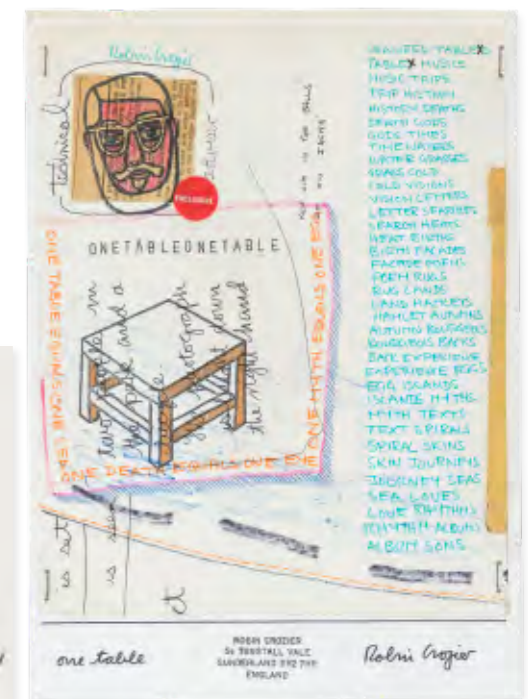 Robin Crozier
technical
EXCLUSIVE
ONETABLEONETABLE
ONE TABLE EQUALS ONE SEA
ONE DEATH EQUALS ONE EYE
ONE MYTH EQUALS ONE EGG
the park and a
photograph
down
the right hand
is set
is seen
TABLEX MUSICS
MUSIC TRIPS
TRIP HISTORY
HISTORY DEATHS
DEATH GODS
GODS TIMES
TIME WATERS
WATER GRASSES
GRASS COLD
COLD VISIONS
VISION LETTERS
LETTER SEARCHES
SEARCH HEATS
HEAT BIRTHS
BIRTH FACADES
FACADE POEMS
POEM RUGS
RUG LANDS
LAND HAMLETS
HAMLET AUTUMNS
AUTUMN
BACKS
BACK EXPERIENCE
EXPERIENCE EGGS
EGG ISLANDS
ISLANDS MYTHS
MYTH TEXTS
TEXT SPIRALS
SPIRAL SKINS
SKIN JOURNEYS
JOURNEY SEAS
SEA LOVES
LOVE RHYTHMS
RHYTHM ALBUMS
ALBUM SONS
one table
ROBIN CROZIER
5b TUNSTALL VALE
SUNDERLAND SR2 7HP
ENGLAND
Robin Crozier